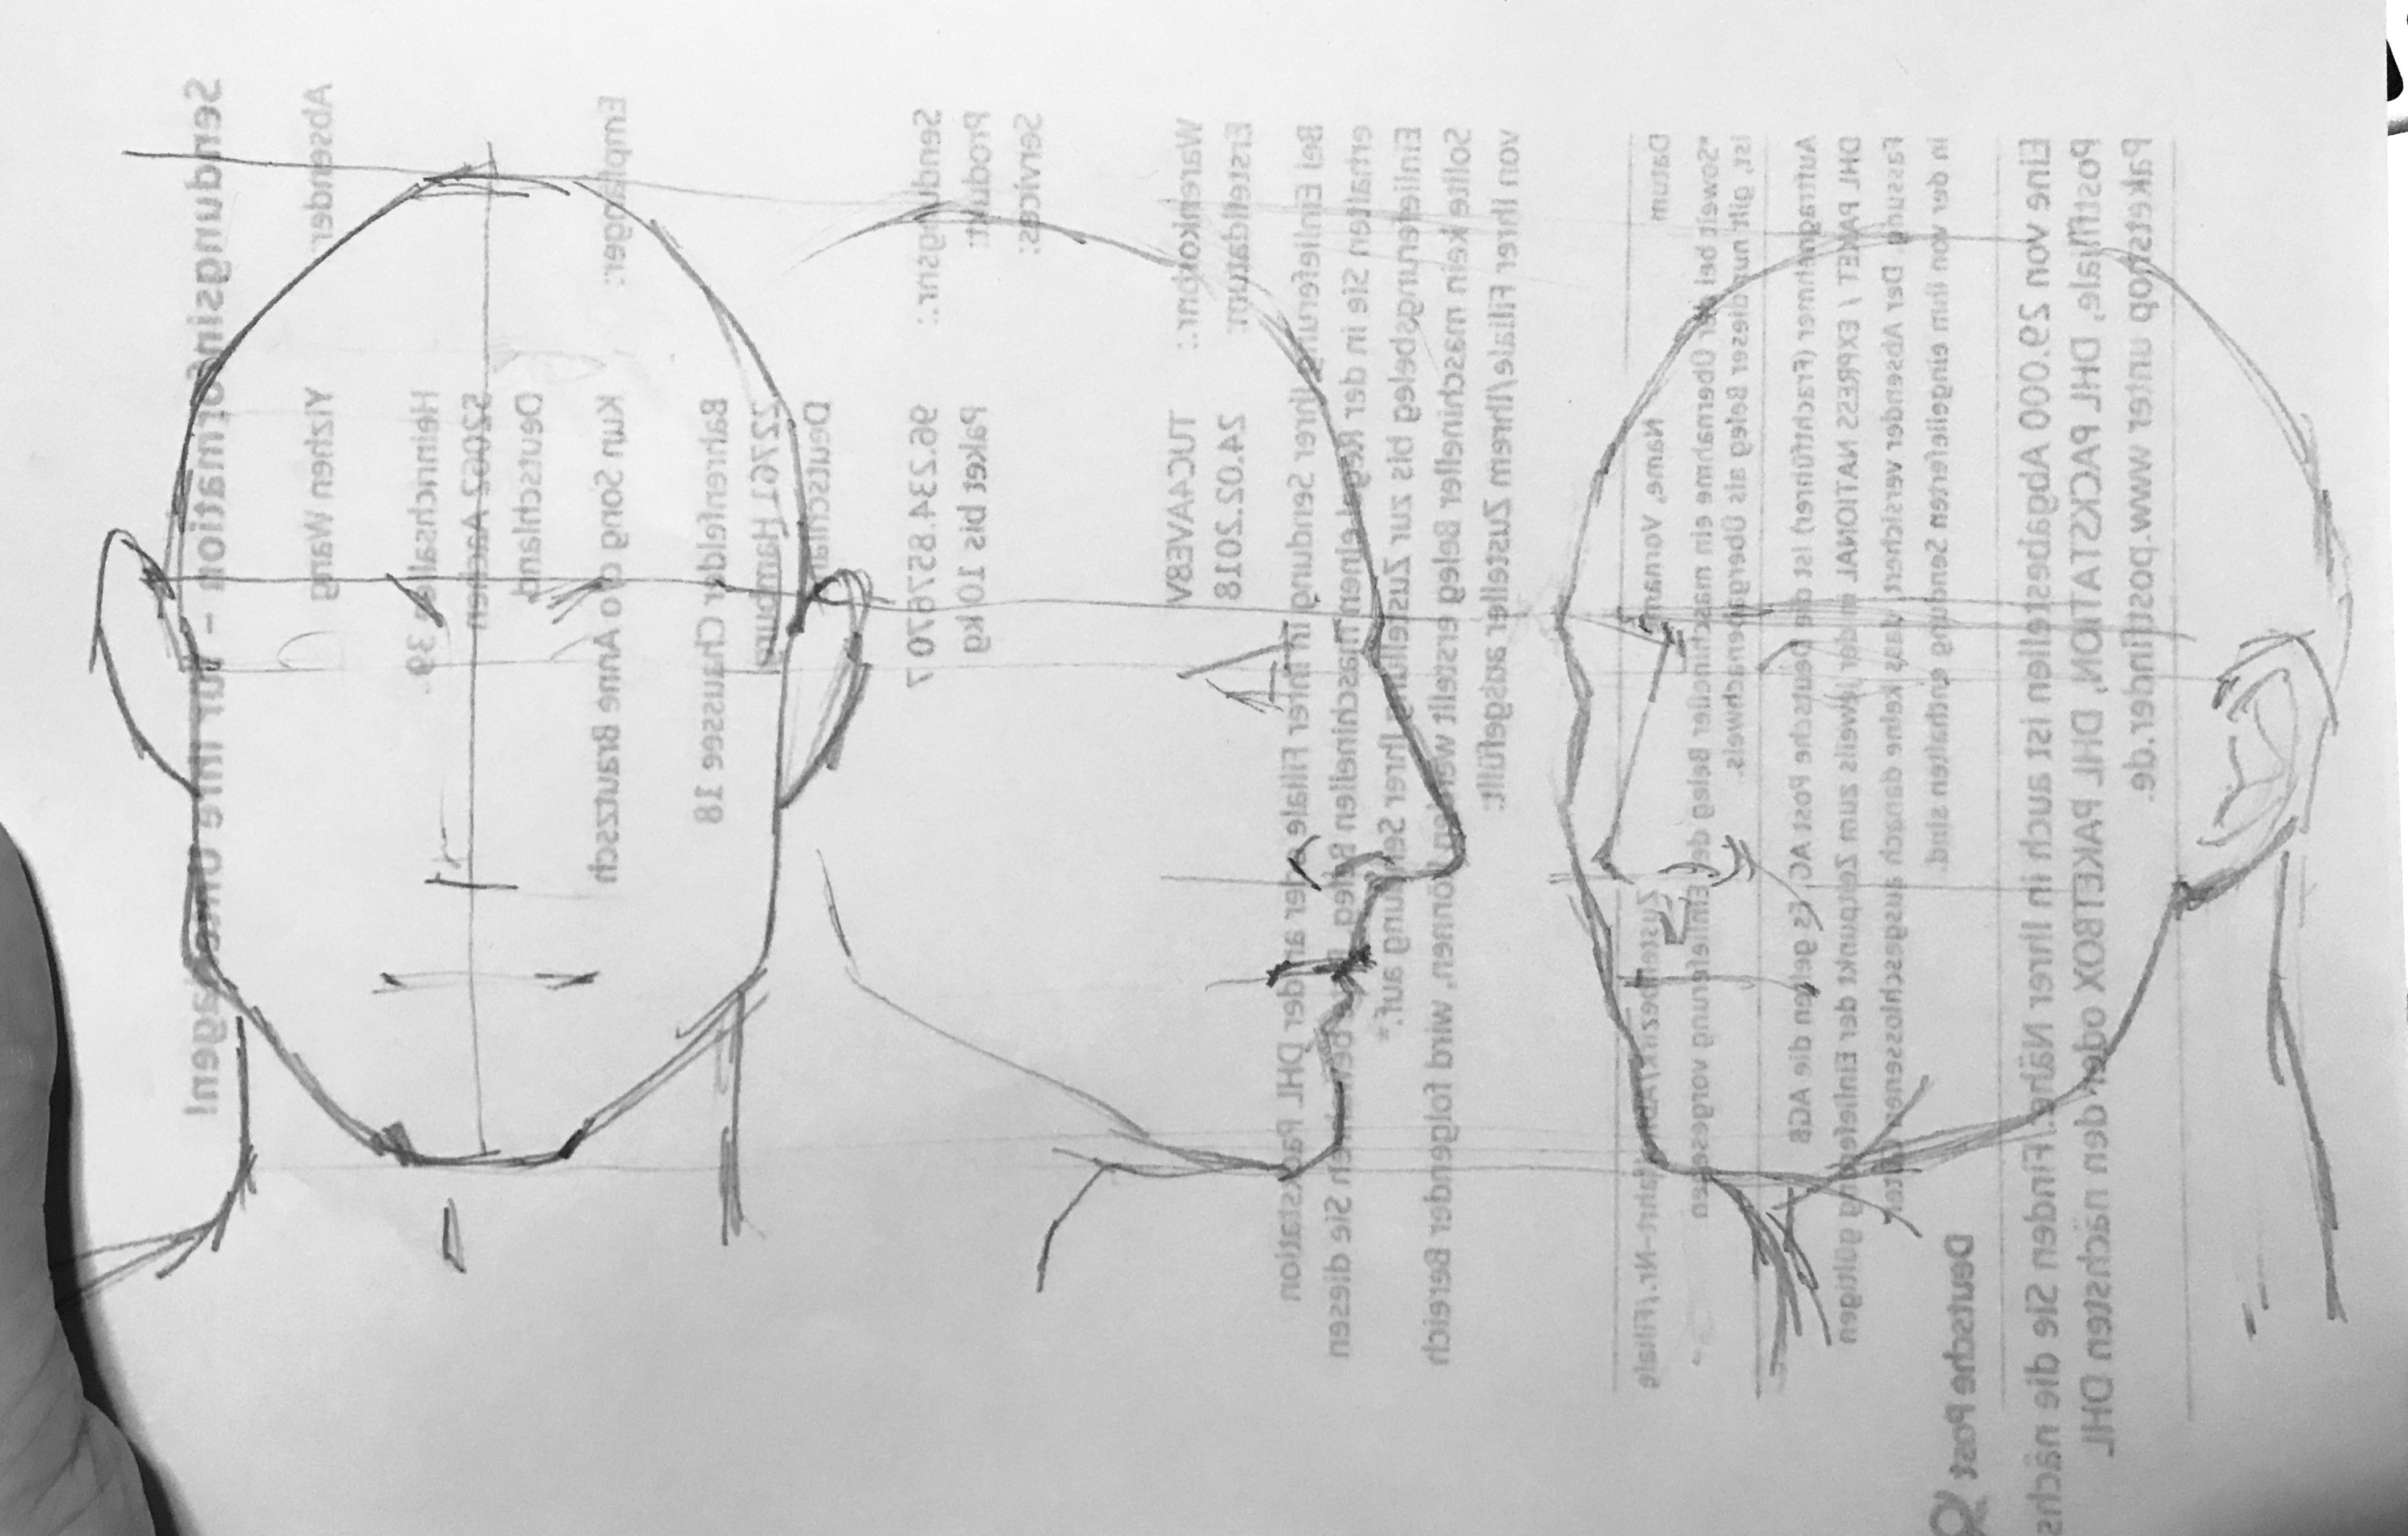 Sendungsinformation – für Ihre Unterlagen!
Absender:
Yizhen Wang
Heinrichsallee 39
52062 Aachen
Deutschland
Empfänger:
Kun Song c/o Anne Brautzsch
Bahrenfelder Chaussee 18
22761 Hamburg
Deutschland
Sendungsnr.: 96.234.857670 7
Produkt: Paket bis 10 kg
Services:
Warenkorbnr.: TUC4AVE8V
Erstelldatum: 24.02.2018
Bei Einlieferung Ihrer Sendung in Ihrer Filiale oder an der DHL Packstation
erhalten Sie in der Regel einen maschinellen Beleg. Bitte bewahren Sie diesen
Einlieferungsbeleg bis zur Zustellung Ihrer Sendung auf.*
Sollte kein maschineller Beleg erstellt werden können, wird folgender Bereich
von Ihrer Filiale/Ihrem Zusteller ausgefüllt:
Datum Name, Vorname
*Soweit bei der Übernahme ein maschineller Beleg der Einlieferung vorgesehen
ist, gilt nur dieser Beleg als Übergabenachweis.
Auftragnehmer (Frachtführer) ist die Deutsche Post AG. Es gelten die AGB
DHL PAKET / EXPRESS NATIONAL in der jeweils zum Zeitpunkt der Einlieferung gültigen
Fassung. Der Absender versichert, dass keine danach ausgeschlossenen Güter
in der von ihm eingelieferten Sendung enthalten sind.
Deutsche Post
Eine von 29.000 Abgabestellen ist auch in Ihrer Nähe. Finden Sie die
Postfiliale, DHL PACKSTATION, DHL PAKETBOX oder den nächsten DHL
Paketshop unter www.postfinder.de.